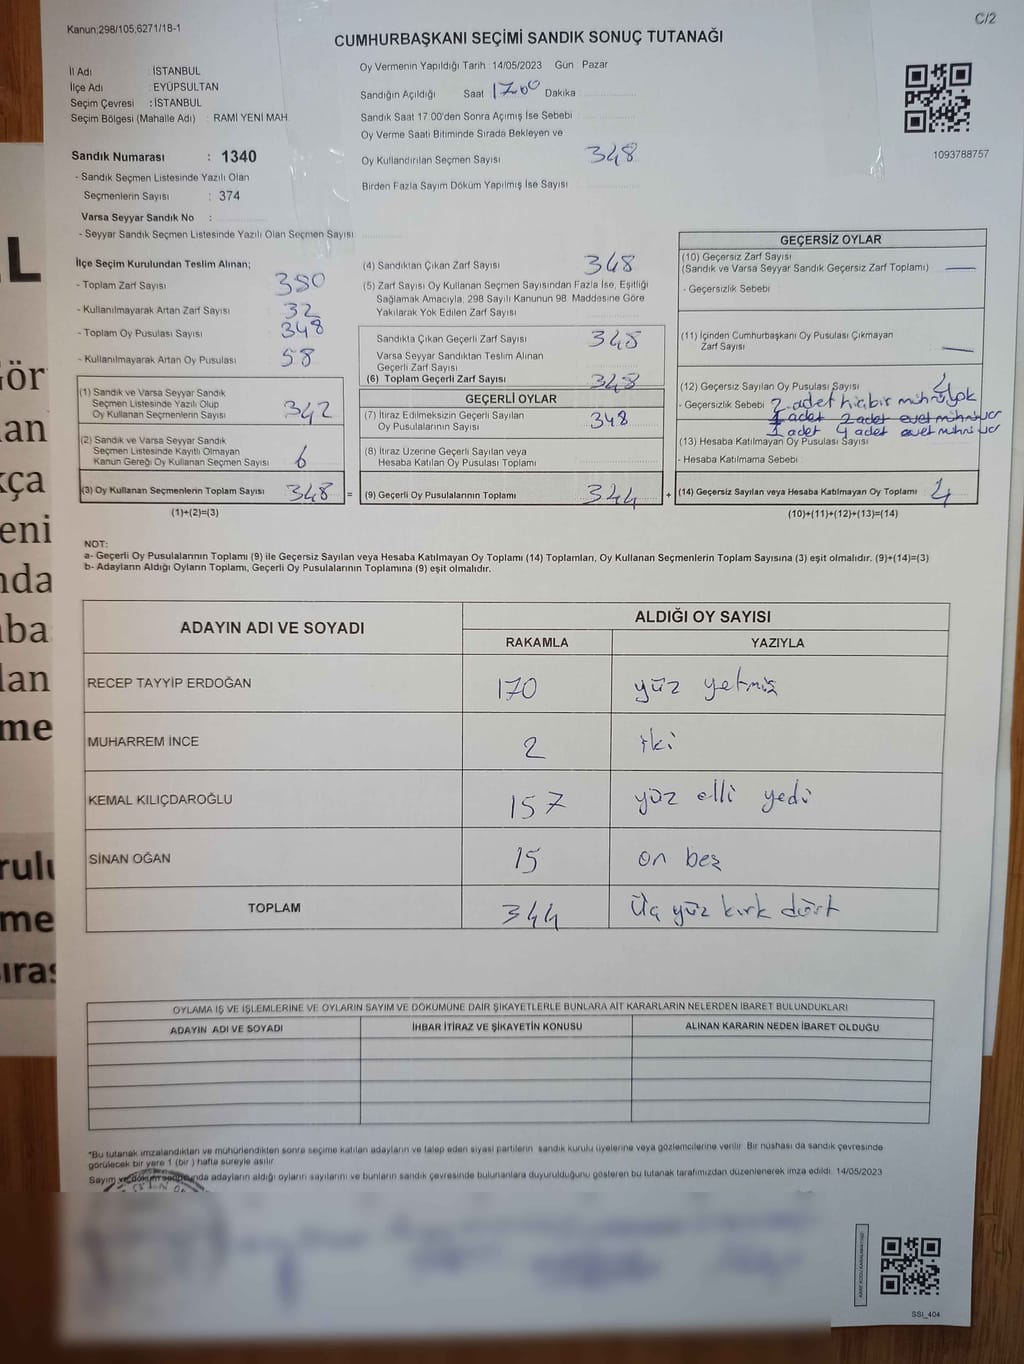 C/2
Kanun;298/105,6271/18-1
CUMHURBAŞKANI SEÇİMİ SANDIK SONUÇ TUTANAĞI
İl Adı : İSTANBUL
İlçe Adı : EYÜPSULTAN
Seçim Çevresi : İSTANBUL
Seçim Bölgesi (Mahalle Adı) RAMİ YENİ MAH.
Sandık Numarası : 1340
- Sandık Seçmen Listesinde Yazılı Olan
Seçmenlerin Sayısı : 374
Varsa Seyyar Sandık No :
- Seyyar Sandık Seçmen Listesinde Yazılı Olan Seçmen Sayısı
Oy Vermenin Yapıldığı Tarih : 14/05/2023 Gün : Pazar
Sandığın Açıldığı Saat 17.00 Dakika
Sandık Saat 17.00'den Sonra Açımış İse Sebebi
Oy Verme Saati Bitiminde Sırada Bekleyen ve
Oy Kullandırılan Seçmen Sayısı 348
Birden Fazla Sayım Döküm Yapılmış İse Sayısı
1093788757
İlçe Seçim Kurulundan Teslim Alınan;
- Toplam Zarf Sayısı 380
- Kullanılmayarak Artan Zarf Sayısı 32
- Toplam Oy Pusulası Sayısı 348
- Kullanılmayarak Artan Oy Pusulası 58
(1) Sandık ve Varsa Seyyar Sandık
Seçmen Listesinde Yazılı Olup
Oy Kullanan Seçmenlerin Sayısı 342
(2) Sandık ve Varsa Seyyar Sandık
Seçmen Listesinde Kayıtlı Olmayan
Kanun Gereği Oy Kullanan Seçmen Sayısı 6
(3) Oy Kullanan Seçmenlerin Toplam Sayısı 348 =
(1)+(2)=(3)
(4) Sandıktan Çıkan Zarf Sayısı 348
(5) Zarf Sayısı Oy Kullanan Seçmen Sayısından Fazla İse, Eşitliği
Sağlamak Amacıyla, 298 Sayılı Kanunun 98. Maddesine Göre
Yakılarak Yok Edilen Zarf Sayısı
Sandıkta Çıkan Geçerli Zarf Sayısı 348
Varsa Seyyar Sandıktan Teslim Alınan
Geçerli Zarf Sayısı
(6) Toplam Geçerli Zarf Sayısı 348
GEÇERLİ OYLAR
(7) İtiraz Edilmeksizin Geçerli Sayılan
Oy Pusulalarının Sayısı 348
(8) İtiraz Üzerine Geçerli Sayılan veya
Hesaba Katılan Oy Pusulası Toplamı
(9) Geçerli Oy Pusulalarının Toplamı 344 +
GEÇERSİZ OYLAR
(10) Geçersiz Zarf Sayısı
(Sandık ve Varsa Seyyar Sandık Geçersiz Zarf Toplamı) —
- Geçersizlik Sebebi
(11) İçinden Cumhurbaşkanı Oy Pusulası Çıkmayan
Zarf Sayısı —
(12) Geçersiz Sayılan Oy Pusulası Sayısı 4
- Geçersizlik Sebebi 2 adet hiçbir mühür yok
1 adet 2 adet evet mührü var
1 adet 4 adet evet mührü var
(13) Hesaba Katılmayan Oy Pusulası Sayısı
- Hesaba Katılmama Sebebi
(14) Geçersiz Sayılan veya Hesaba Katılmayan Oy Toplamı 4
(10)+(11)+(12)+(13)=(14)
NOT:
a- Geçerli Oy Pusulalarının Toplamı (9) ile Geçersiz Sayılan veya Hesaba Katılmayan Oy Toplamı (14) Toplamları, Oy Kullanan Seçmenlerin Toplam Sayısına (3) eşit olmalıdır. (9)+(14)=(3)
b- Adayların Aldığı Oyların Toplamı, Geçerli Oy Pusulalarının Toplamına (9) eşit olmalıdır.
ADAYIN ADI VE SOYADI ALDIĞI OY SAYISI
RAKAMLA YAZIYLA
RECEP TAYYİP ERDOĞAN 170 yüz yetmiş
MUHARREM İNCE 2 iki
KEMAL KILIÇDAROĞLU 157 yüz elli yedi
SİNAN OĞAN 15 on beş
TOPLAM 344 Üç yüz kırk dört
OYLAMA İŞ VE İŞLEMLERİNE VE OYLARIN SAYIM VE DÖKÜMÜNE DAİR ŞİKAYETLERLE BUNLARA AİT KARARLARIN NELERDEN İBARET BULUNDUKLARI
ADAYIN ADI VE SOYADI İHBAR İTİRAZ VE ŞİKAYETİN KONUSU ALINAN KARARIN NEDEN İBARET OLDUĞU
*Bu tutanak imzalandıktan ve mühürlendikten sonra seçime katılan adayların ve talep eden siyasi partilerin sandık kurulu üyelerine veya gözlemcilerine verilir. Bir nüshası da sandık çevresinde
görülecek bir yere 1 (bir) hafta süreyle asılır.
Sayım ve döküm sonunda adayların aldığı oyların sayılarını ve bunların sandık çevresinde bulunanlara duyurulduğunu gösteren bu tutanak tarafımızdan düzenlenerek imza edildi. 14/05/2023
SSI_404